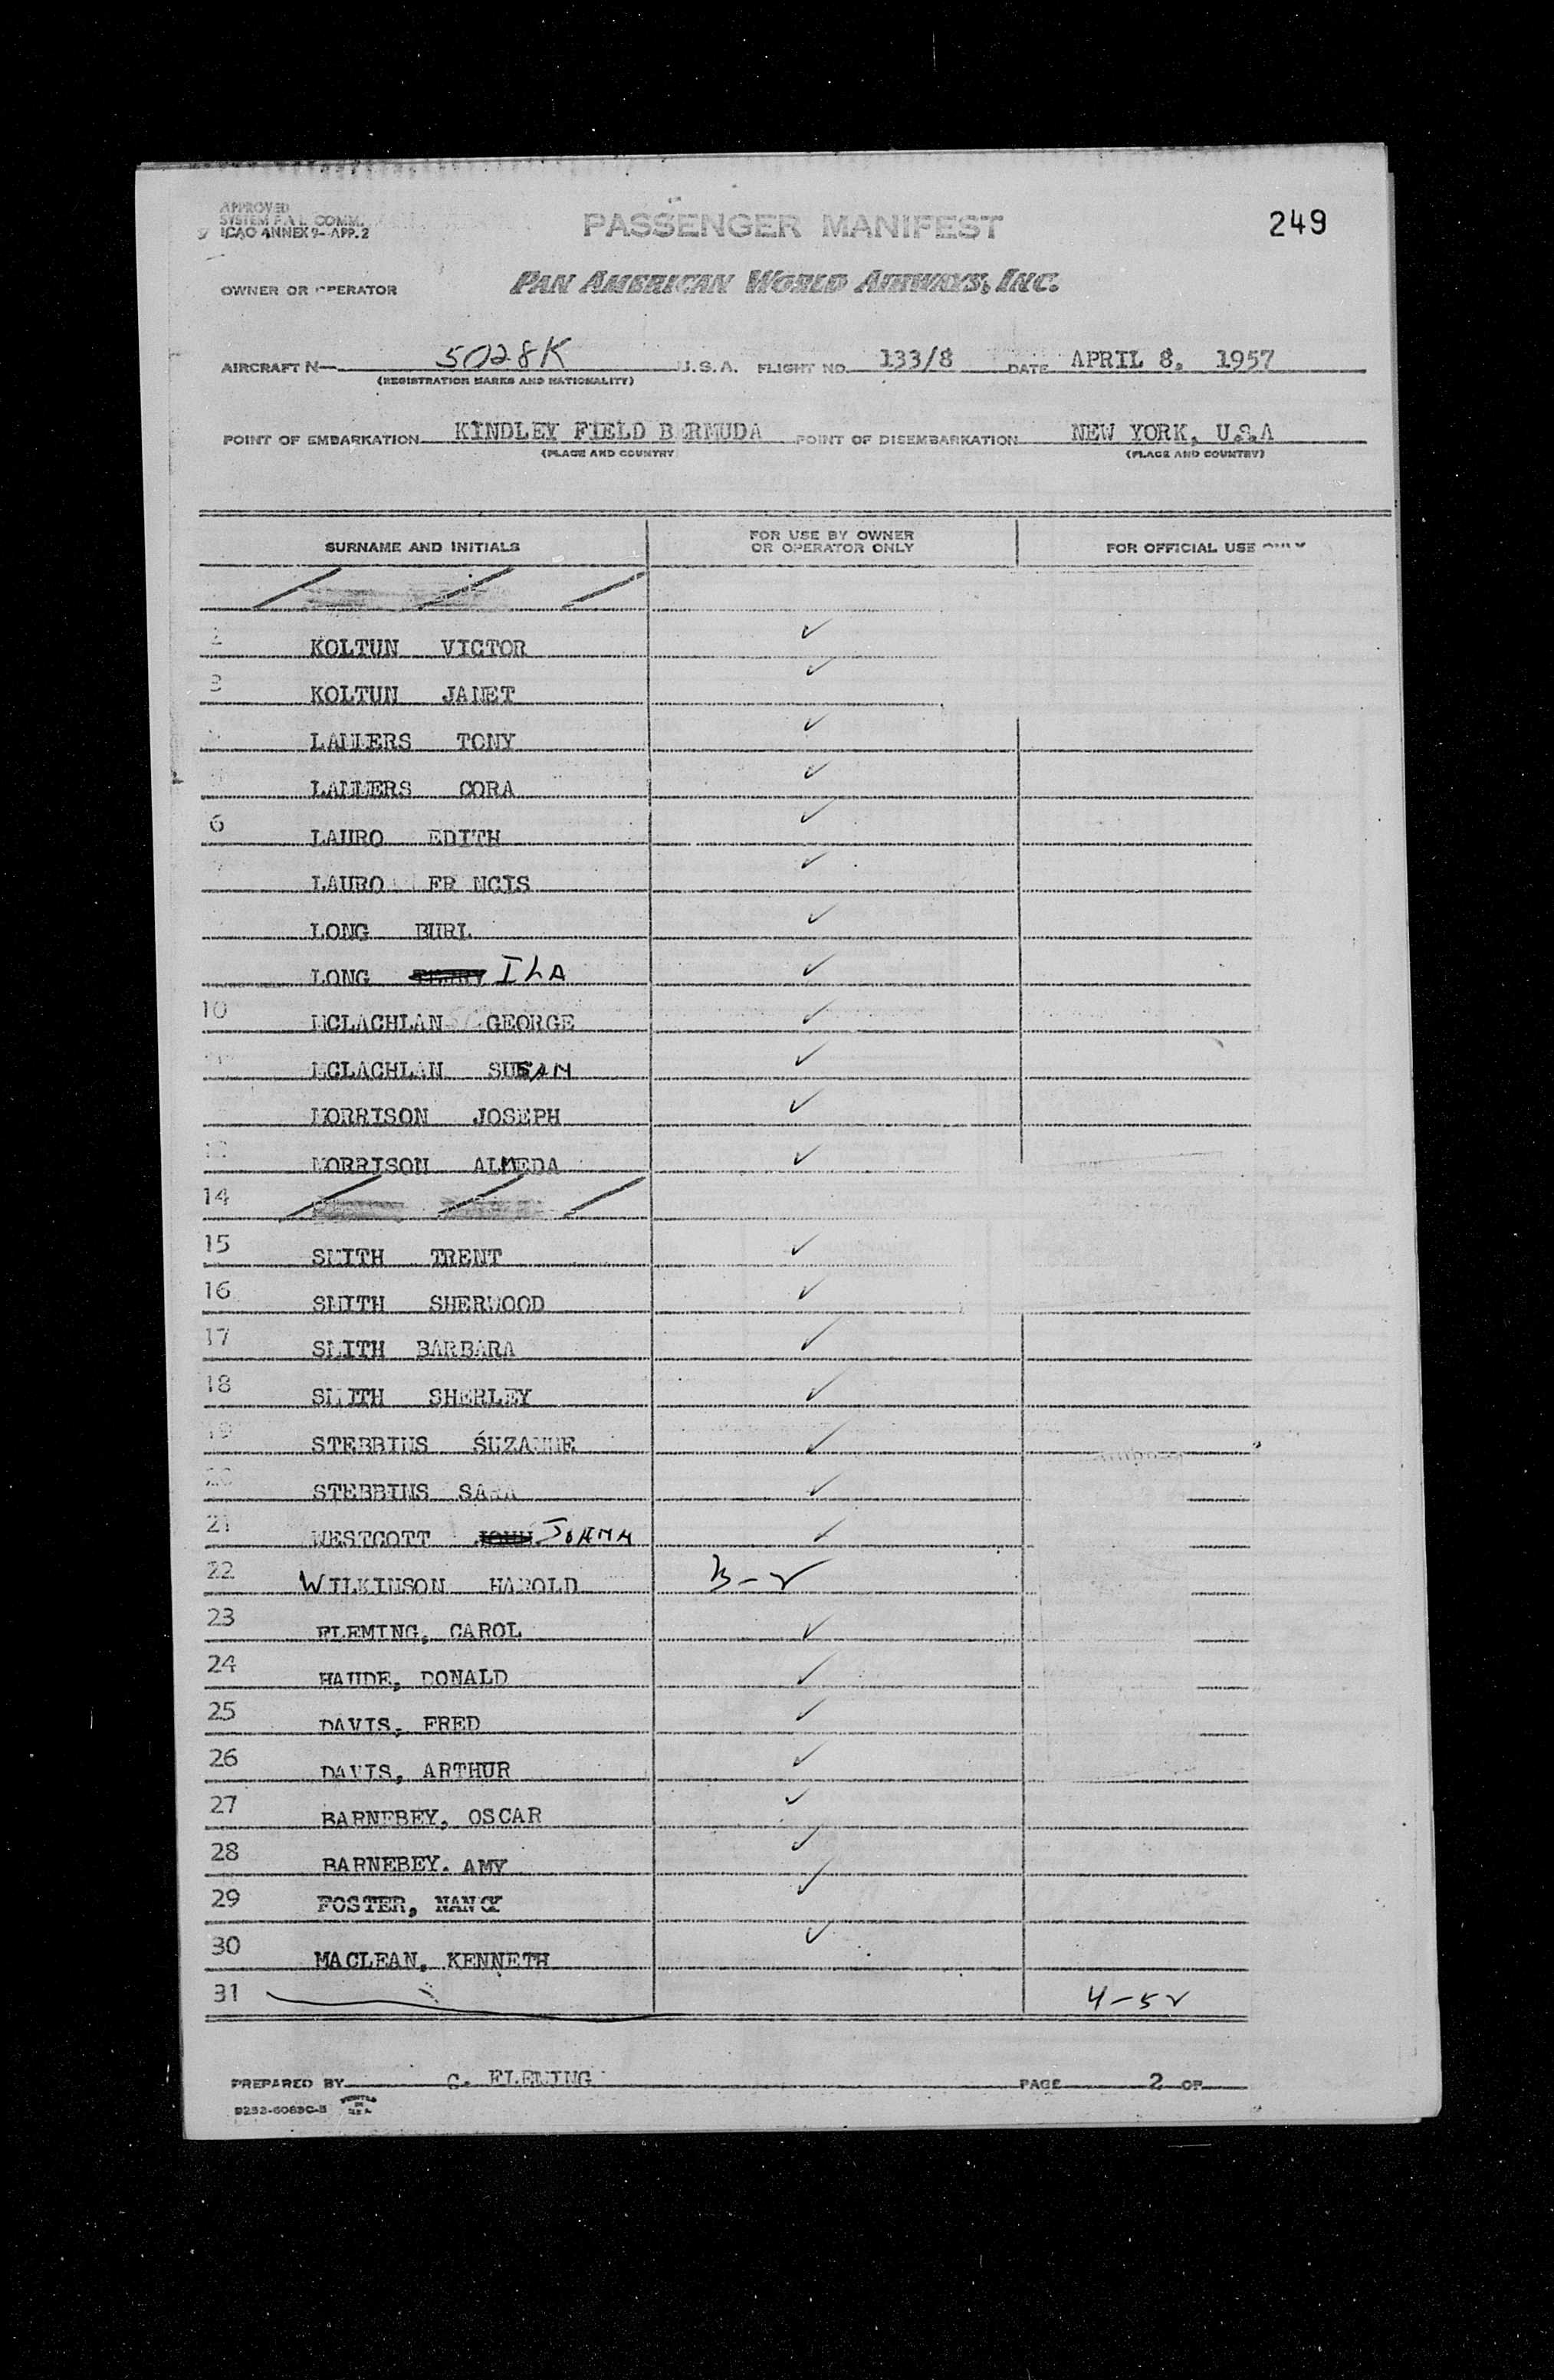 APPROVED
SYSTEM F.A.L. COMM.
ICAO ANNEX 9-APP. 2
PASSENGER MANIFEST
249
OWNER OR OPERATOR PAN AMERICAN WORLD AIRWAYS, INC.
AIRCRAFT N- 5028K U.S.A. FLIGHT NO. 133/8 DATE APRIL 8, 1957
(REGISTRATION MARKS AND NATIONALITY)
POINT OF EMBARKATION KINDLEY FIELD BERMUDA POINT OF DISEMBARKATION NEW YORK, U.S.A
(PLACE AND COUNTRY (PLACE AND COUNTRY)
SURNAME AND INITIALS FOR USE BY OWNER OR OPERATOR ONLY FOR OFFICIAL USE ONLY
2 KOLTUN VICTOR ✓
3 KOLTUN JANET ✓
LAMMERS TONY ✓
LAMMERS CORA ✓
6 LAURO EDITH ✓
LAURO FR NCIS ✓
LONG BURL ✓
LONG ILA ✓
10 MCLACHLAN GEORGE ✓
MCLACHLAN SUSAN ✓
MORRISON JOSEPH ✓
13 MORRISON ALMEDA ✓
14
15 SMITH TRENT ✓
16 SMITH SHERWOOD ✓
17 SMITH BARBARA ✓
18 SMITH SHERLEY ✓
19 STEBBINS SUZANNE ✓
20 STEBBINS SARA ✓
21 WESTCOTT JOHN JOANN ✓
22 WILKINSON HAROLD B-2
23 FLEMING, CAROL ✓
24 HAUDE, DONALD ✓
25 DAVIS, FRED ✓
26 DAVIS, ARTHUR ✓
27 BARNEBEY, OSCAR ✓
28 BARNEBEY. AMY ✓
29 FOSTER, NANCY ✓
30 MACLEAN, KENNETH ✓
31 4-52
PREPARED BY C. FLEMING PAGE 2 OF
9253-6083C-B